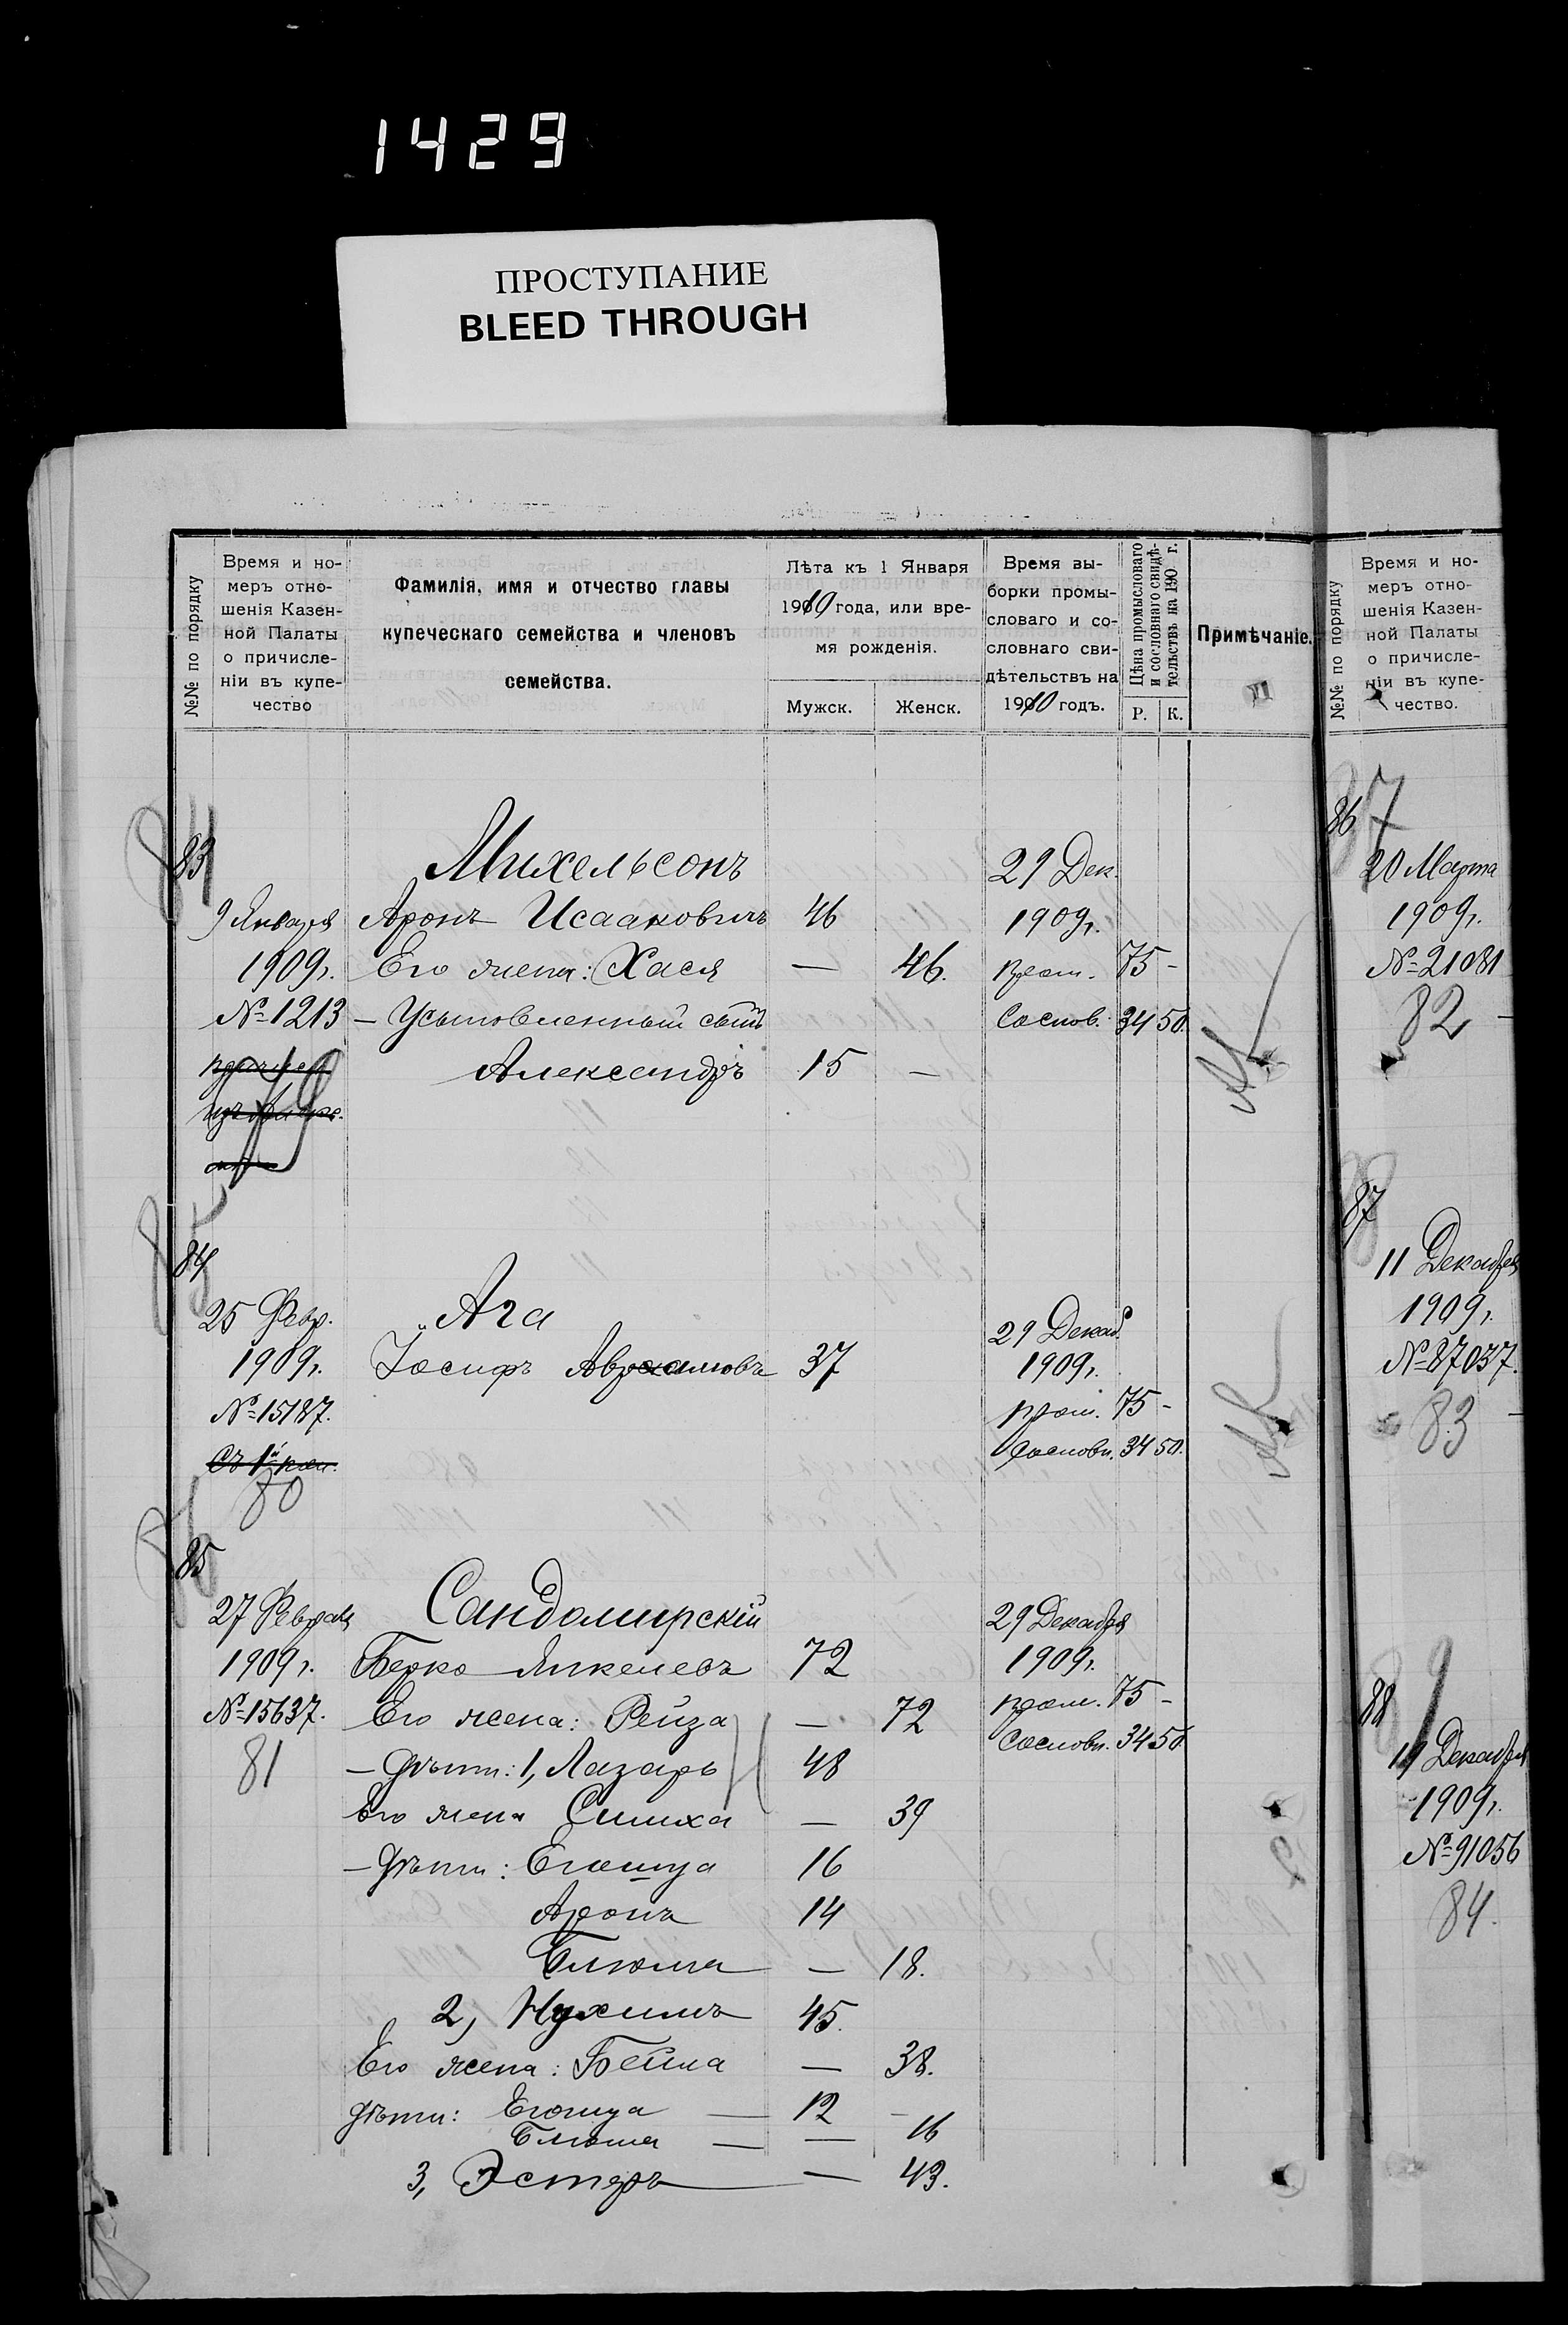 1429
ПРОСТУПАНИЕ
BLEED THROUGH
№№ по порядку
Время и но-
меръ отно-
шенія Казен-
ной Палаты
о причисле-
ніи въ купе-
чество
Фамилія, имя и отчество главы
купеческаго семейства и членовъ
семейства.
Лѣта къ 1 Января
1910 года, или вре-
мя рожденія.
Мужск.
Женск.
Время вы-
борки промы-
словаго и со-
словнаго сви-
дѣтельствъ на
1910 годъ.
Цѣна промысловаго
и сословнаго свидѣ-
тельствъ на 190 г.
Р. К.
Примѣчаніе.
84
83
Михельсонъ
29 Дек.
9 Января Аронъ Исааковичъ 46 1909г.
1909г. Его жена: Хася — 46. пром. 75 -
№ 1213 — Усыновленный сынъ Сослов. 34 50.
Александръ 15 —
79
85
84
25 Февр. Ага 29 Декаб.
1909г. Іосифъ Абрамовъ 37 1909г.
№ 15187. пром. 75 -
Съ 1й Сословн. 34 50.
80
86
85
27 Февраля Сандомирскій 29 Декабря
1909г. Берко Янкелевъ 72 1909г.
№ 15637. Его жена: Рейза — 72 пром. 75 -
81 — Дѣти: 1, Лазарь 48 Сословн. 34 50
Его жена Симха — 39
— Дѣти: Егошуа 16
Аронъ 14
Блюма — 18.
2, Нухимъ 45.
Его жена: Бейла — 38.
Дѣти: Егошуа — 12 —
Блюма — — 16
3, Эстеръ — 43.
№№ по порядку
Время и но-
меръ отно-
шенія Казен-
ной Палаты
о причисле-
ніи въ купе-
чество.
87
86
20 Марта
1909г.
№ 21081
82
87
11 Декабря
1909г.
№ 87037.
83
88
Декабря
1909г.
№ 91056
84.